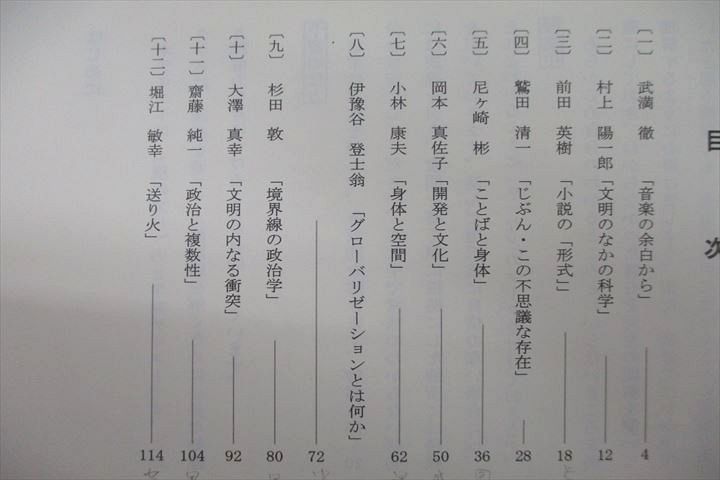 目次
〔一〕 武満 徹 「音楽の余白から」 4
〔二〕 村上 陽一郎 「文明のなかの科学」 12
〔三〕 前田 英樹 「小説の「形式」」 18
〔四〕 鷲田 清一 「じぶん・この不思議な存在」 28
〔五〕 尼ヶ崎 彬 「ことばと身体」 36
〔六〕 岡本 真佐子 「開発と文化」 50
〔七〕 小林 康夫 「身体と空間」 62
〔八〕 伊豫谷 登士翁 「グローバリゼーションとは何か」
72
〔九〕 杉田 敦 「境界線の政治学」 80
〔十〕 大澤 真幸 「文明の内なる衝突」 92
〔十一〕 齋藤 純一 「政治と複数性」 104
〔十二〕 堀江 敏幸 「送り火」 114